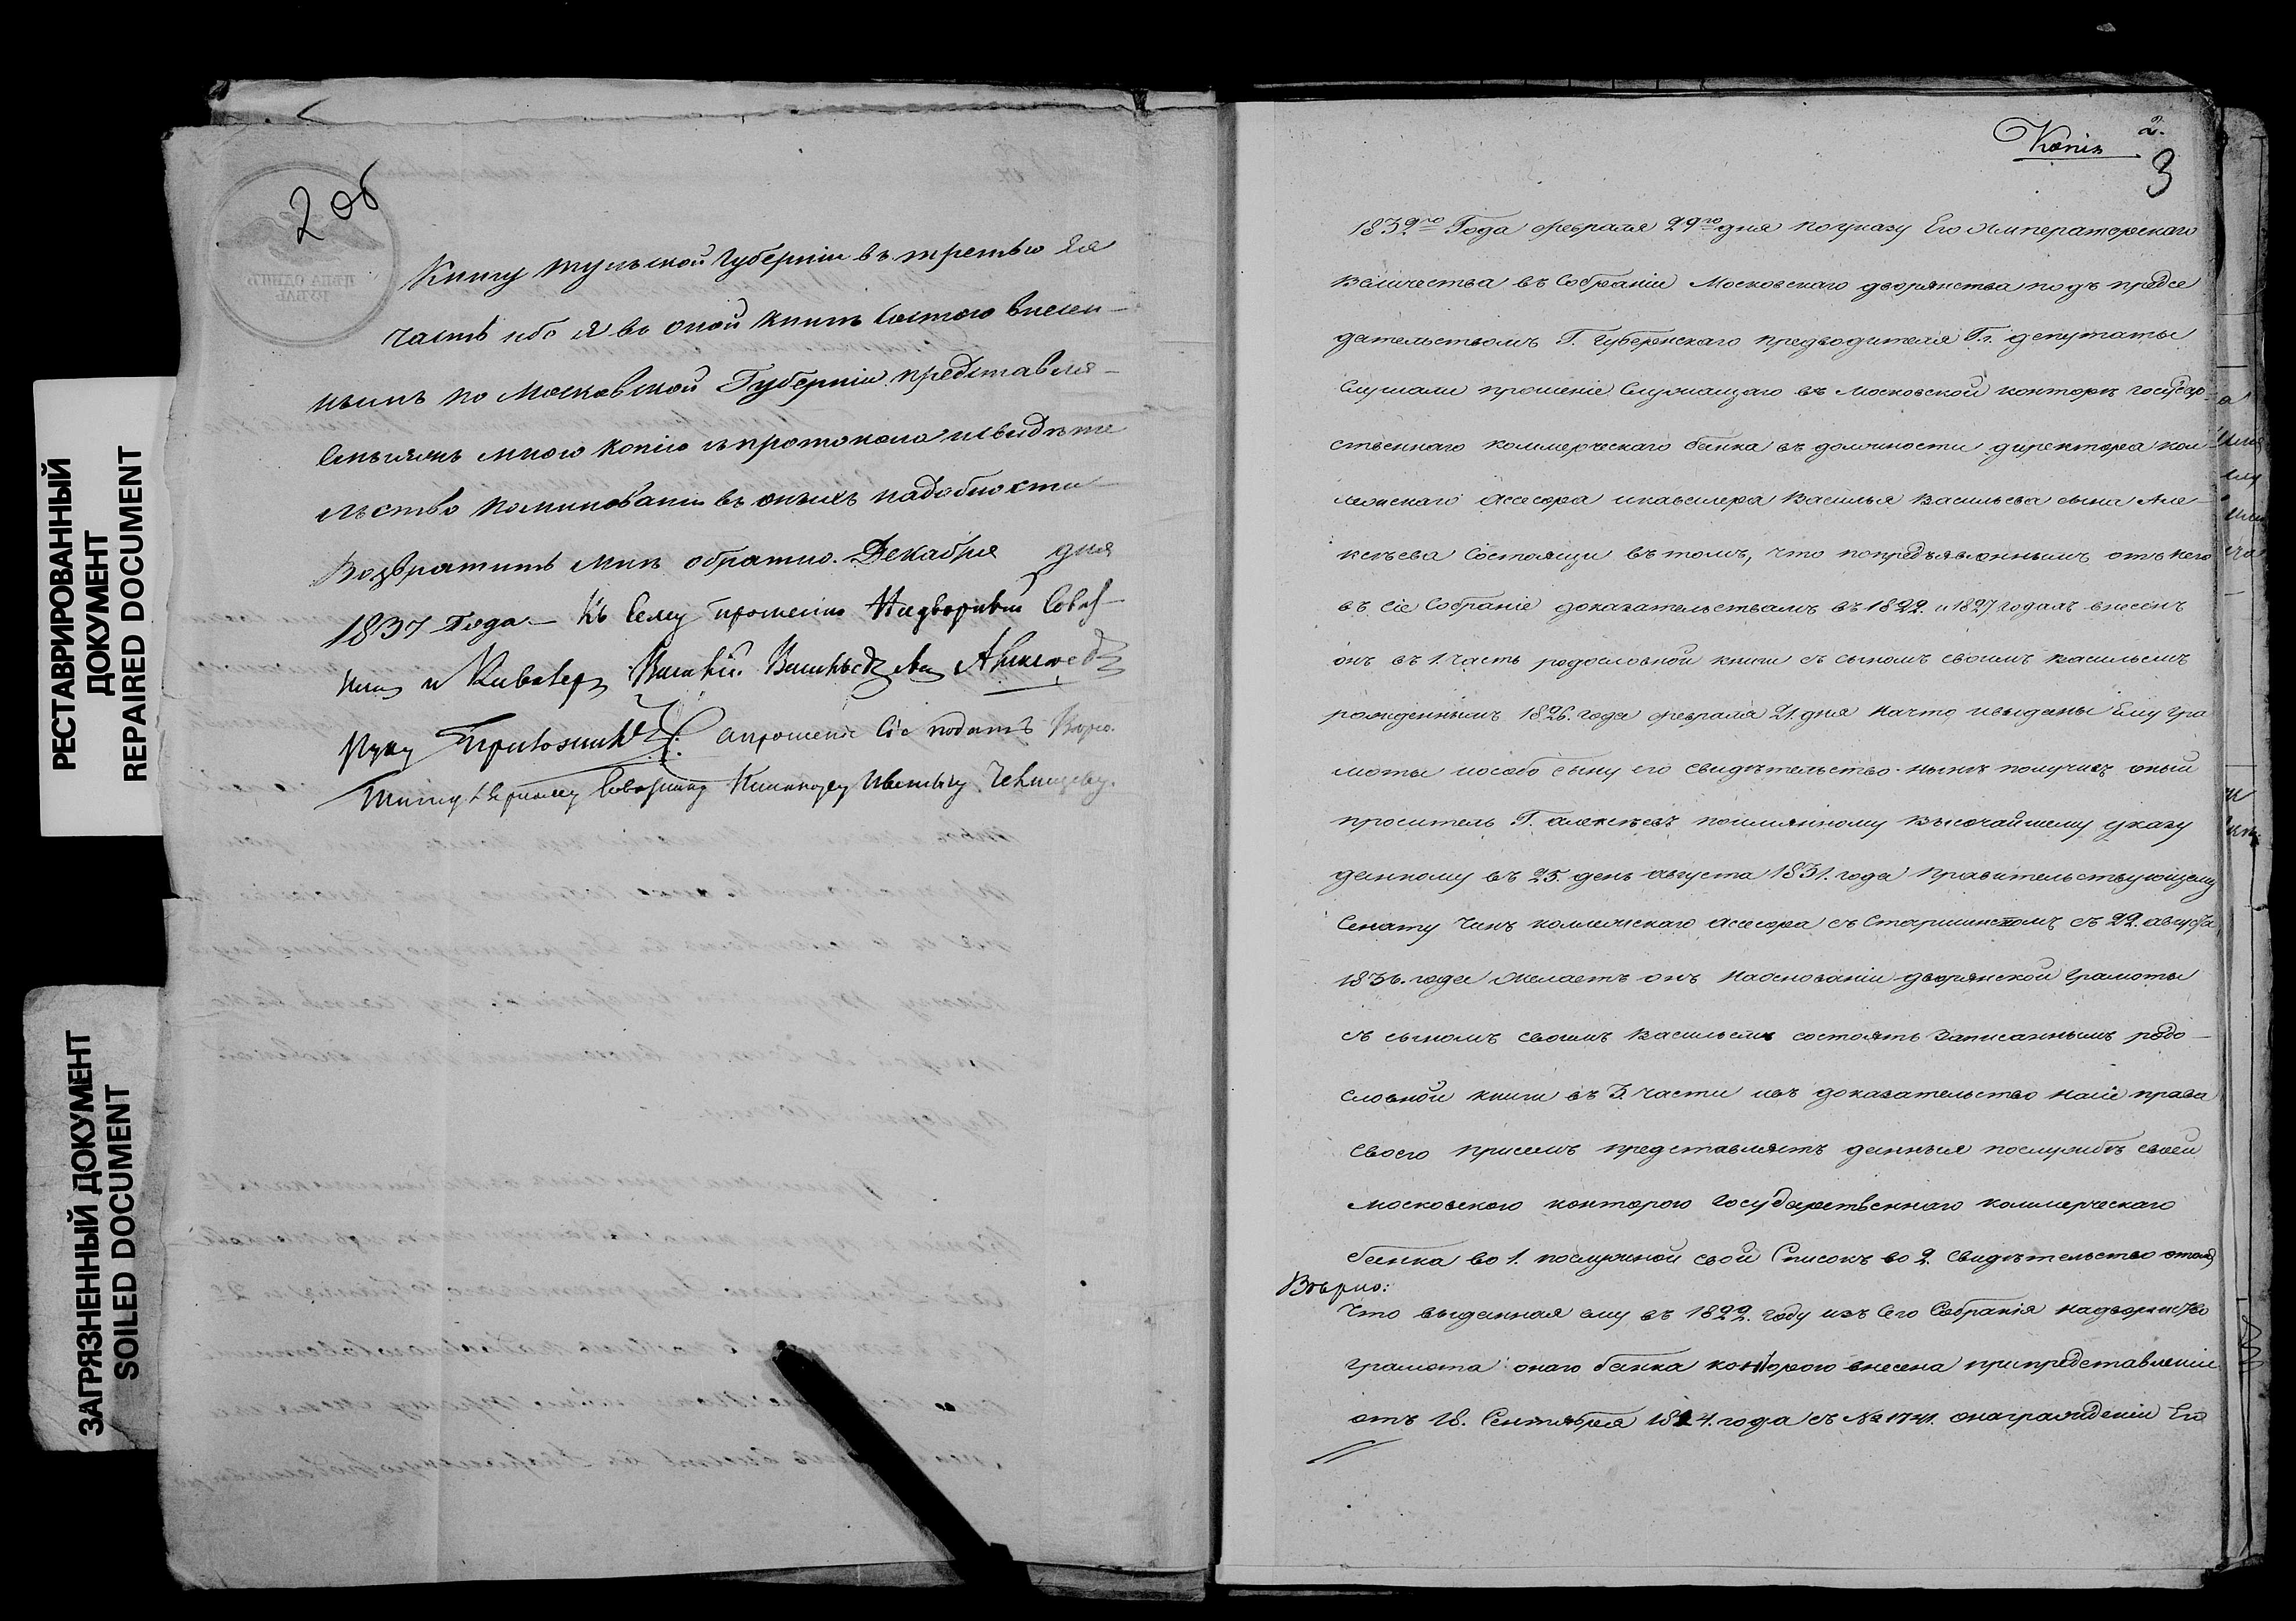 РЕСТАВРИРОВАННЫЙ
ДОКУМЕНТ
REPAIRED DOCUMENT
ЗАГРЯЗНЕННЫЙ ДОКУМЕНТ
SOILED DOCUMENT
2 об
ЦѢНА ОДИНЪ
РУБЛЬ
Книгу тульской Губерніи въ третью Ея
часть ибо я въ оной книгѣ состою внесен-
нымъ по Московской Губерніи представля-
емыя мною копію съ протокола и свидѣте
льство поминованіи въ оныхъ надобности
возвратить мнѣ обратно. Декабря дня
1837 Года — Къ Сему прошенію Надворный Совѣт-
никъ и Кавалеръ Василій Васильевъ сынъ Алексѣевъ
Руку приложилъ. а прошеніе Сіе подать вѣрю.
Титулярному Совѣтнику
Копія
2.
3
1832го Года февраля 29го дня по указу Его Императорскаго
Величества въ Собраніи Московскаго дворянства подъ предсе
дательствомъ Г. Губернскаго предводителя Г.г. депутаты
Слушали прошеніе Служащаго въ Московской конторѣ государ-
ственнаго коммерческаго банка въ должности директора кол-
лежскаго Асессора и кавалера Василья Васильева сына Але-
ксѣева Состоящи въ томъ, что по предъявленнымъ отъ него
въ сіе Собраніе доказательствамъ въ 1822. и 1827 годахъ внесенъ
онъ въ 1. часть родословной книги съ сыномъ своимъ Васильемъ
рожденнымъ 1826. года февраля 21. дня на что и выданы Ему гра
моты и особо сыну его свидѣтельство. нынѣ получивъ оный
проситель Г. алексѣевъ по имянному высочайшему указу
данному въ 25. день августа 1831. года Правительствующему
Сенату Чинъ коллежскаго Асессора съ Старшинствомъ съ 22. августа
1836. года Желаетъ онъ на основаніи дворянской Грамоты
съ сыномъ своимъ Васильемъ состоять Записаннымъ родо-
словной книги въ 3. части и въ доказательство на сіе права
своего присемъ представляетъ данныя по службѣ своей
московскою конторою Государственнаго коммерческаго
банка во 1. послужной свой Списокъ во 2. Свидѣтельство о томъ
Вѣрно:
Что выданная ему въ 1822. году изъ Сего Собранія на дворянство
Грамота онаго банка конторою внесена при представленіи
отъ 18. Сентября 1824. года съ № 1741. о награжденіи Его